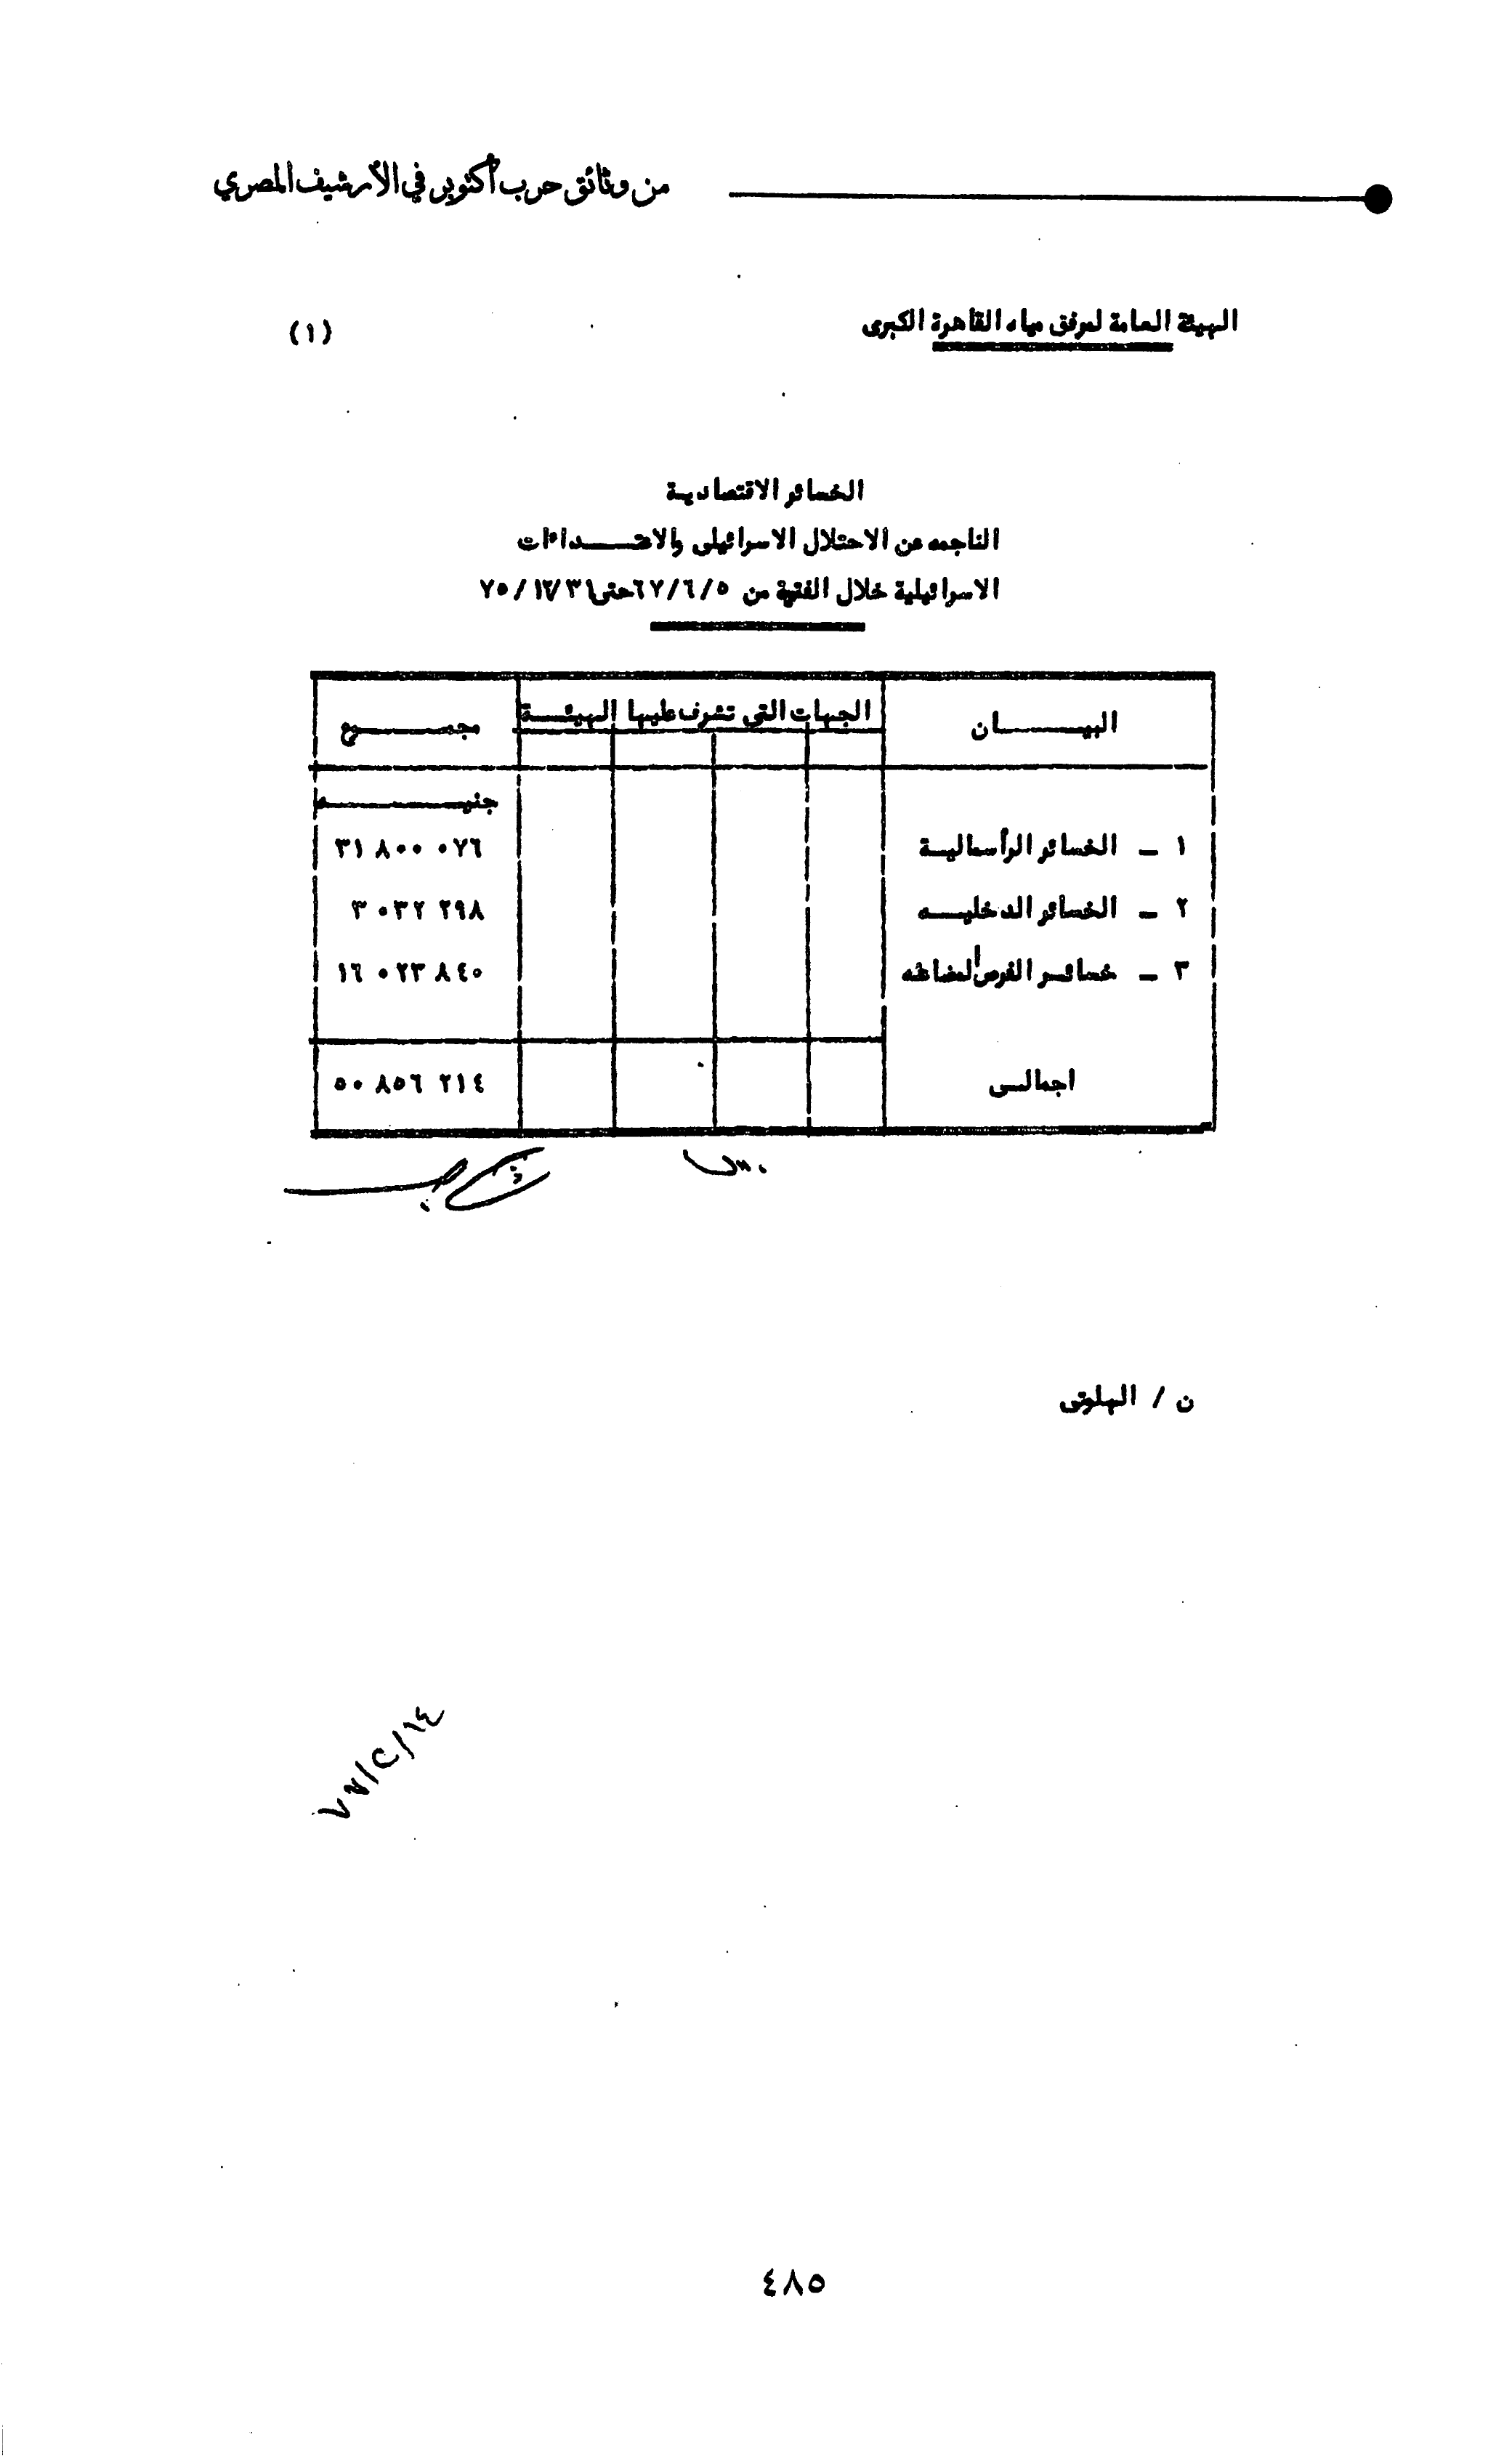 من وثائق حرب أكتوبر في الأرشيف المصري
الهيئة العامة لمرفق مياه القاهرة الكبرى
(١)
الخسائر الاقتصادية
الناجمه عن الاحتلال الاسرائيلى والاعتـــداءات
الاسرائيلية خلال الفترة من ٦٧/٦/٥ حتى ٧٥/١٢/٣١
البيـــــان الجهات التى تشرف عليها الهيئـــة مجمـــــوع
جنيـــــه
١ ـ الخسائر الرأسماليـة ٣١ ٨٠٠ ٠٧٦
٢ ـ الخسائر الدخليـــه ٣ ٠٣٢ ٢٩٨
٣ ـ خسائـر الفرص المضاعه ١٦ ٠٢٣ ٨٤٠
اجمالـى ٥٠ ٨٥٦ ٢١٤
ن / البهلوتى
٧٦/٢/١٤
٤٨٥